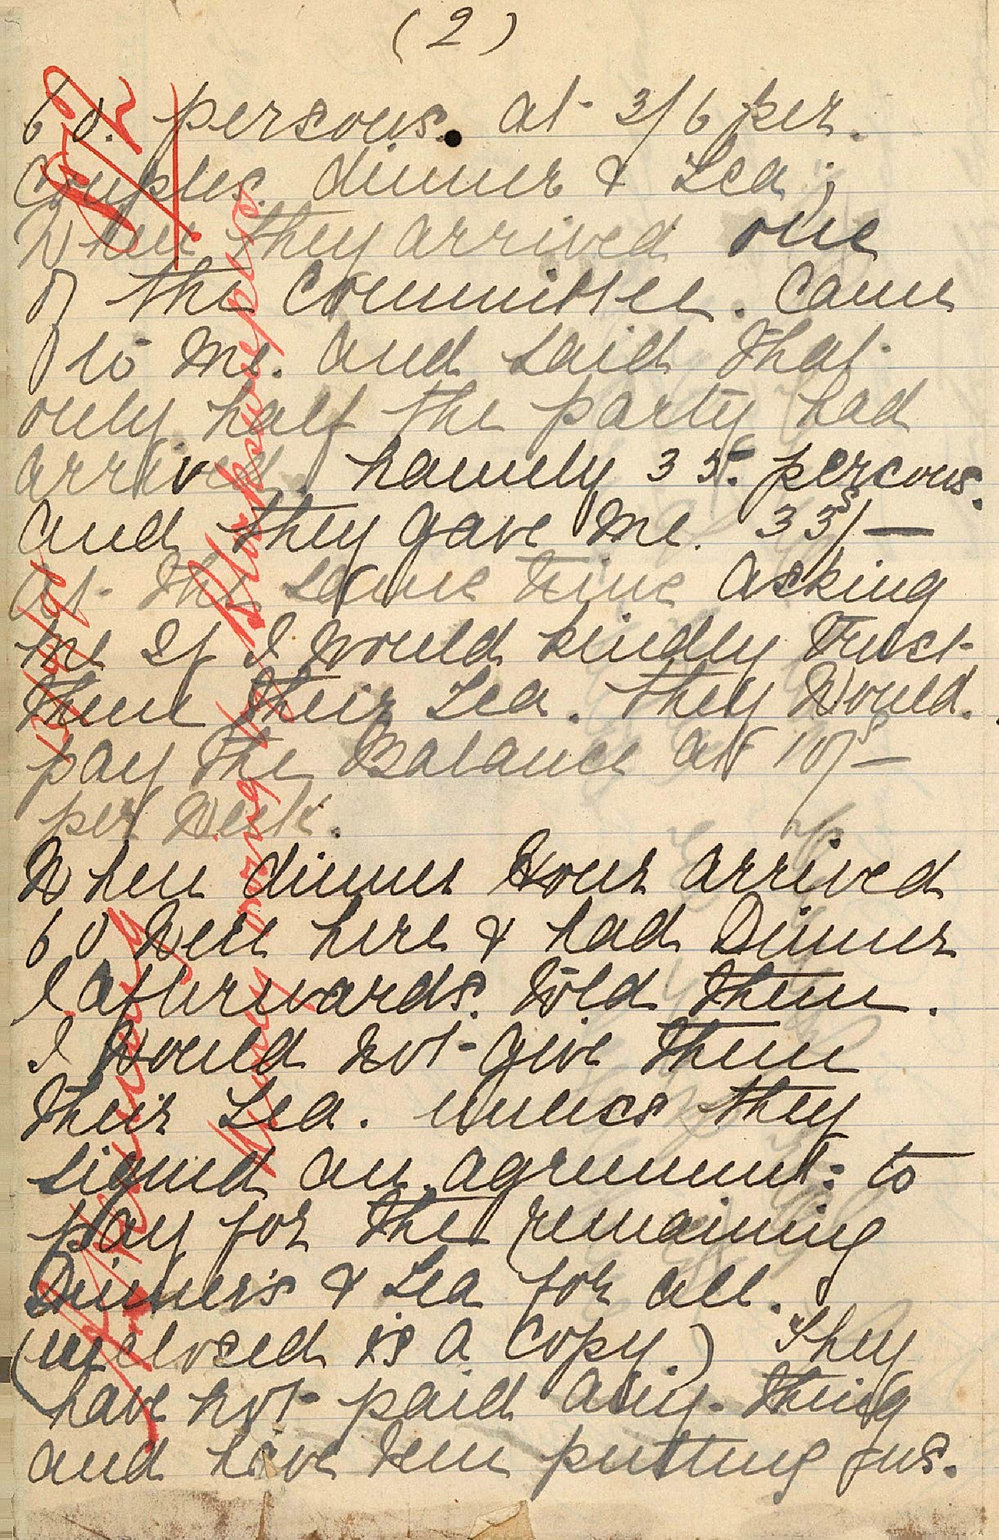 (2)
60. persons. at 3/6 per.
Couples. dinner & Tea;
When they arrived one
of the Committee. Came
to me. and said that
only half the party had
arrived. namely 35. persons.
and they gave me. 35/-
at the same time asking
me If I would kindly Trust
them their Tea. they Would.
pay the Balance at 10/-
per Week.
When dinner Hour arrived
60 Were here & had Dinner
I afterwards. told them.
I Would not give them
their Tea. unless they
signed an agreement: to
pay for the remaining
Dinners & Tea for all.
(inclosed is a Copy.) They
have not paid any-thing
and have been putting us.